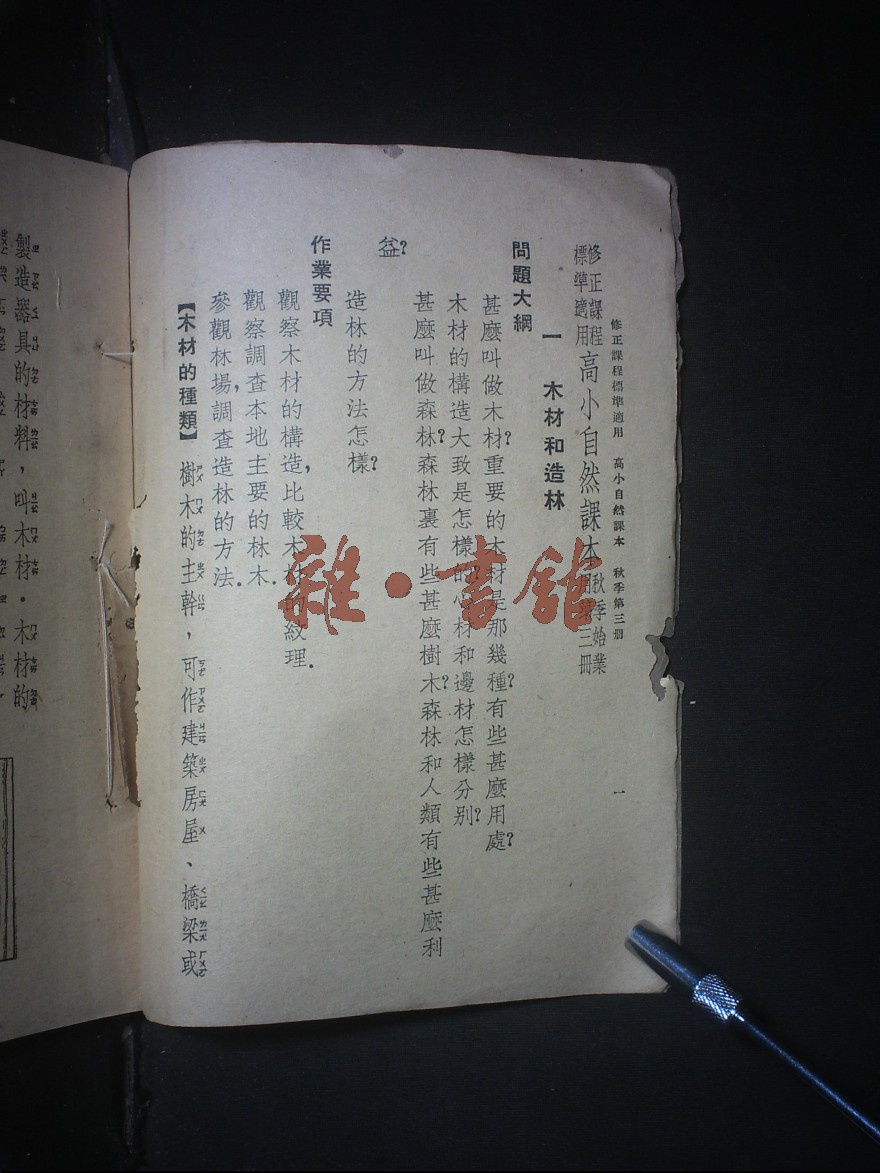 修正課程標準適用 高小自然課本 秋季第三册 一
修正課程標準適用 高小自然課本 秋季始業用第三册
一 木材和造林
問題大綱
甚麼叫做木材?重要的木材是那幾種?有些甚麼用處?
木材的構造大致是怎樣的?心材和邊材怎樣分別?
甚麼叫做森林?森林裏有些甚麼樹木?森林和人類有些甚麼利
益?
造林的方法怎樣?
作業要項
觀察木材的構造,比較木材的紋理.
觀察調查本地主要的林木.
參觀林場,調查造林的方法.
【木材的種類】 樹木的主幹,可作建築房屋、橋梁或
製造器具的材料,叫木材.木材的
雜·書館